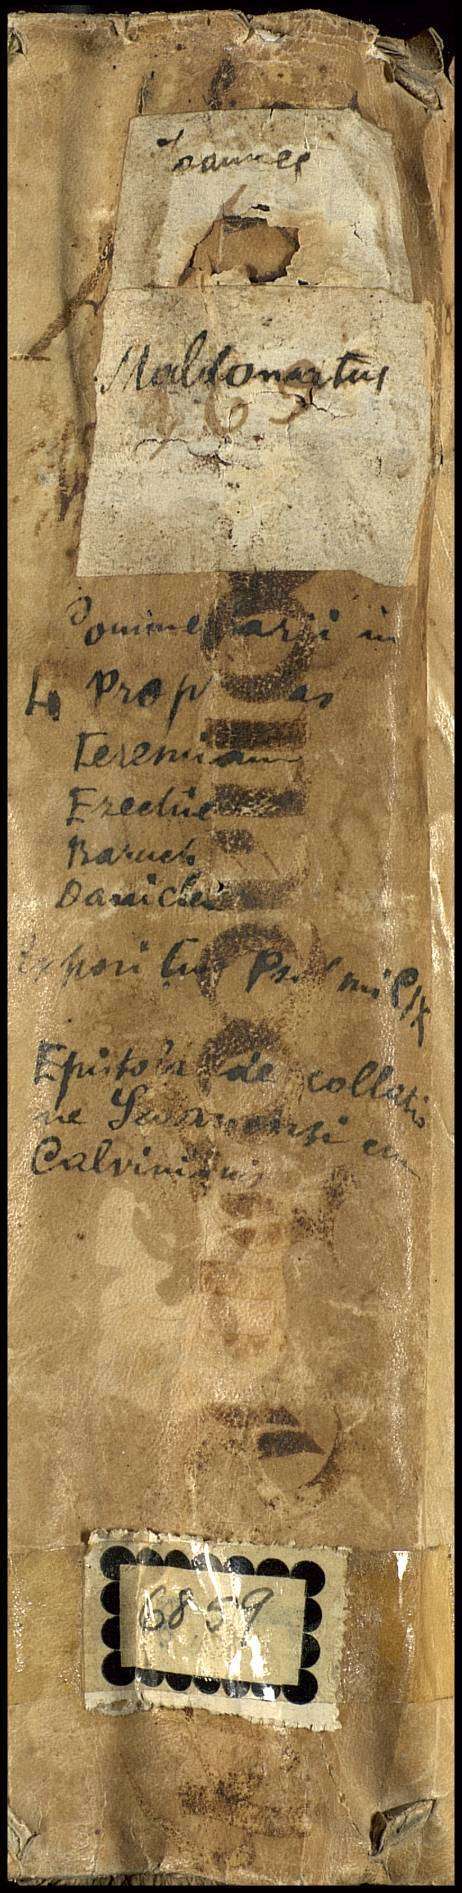 Joannes
Maldonatus
Commentarii in
4 Prop as
Jeremiam
Ezechie
Baruch
Daniele
Expositus Psalmi CIX
Epistola de collatio
ne Sedanensi cu
Calvinianis
6859